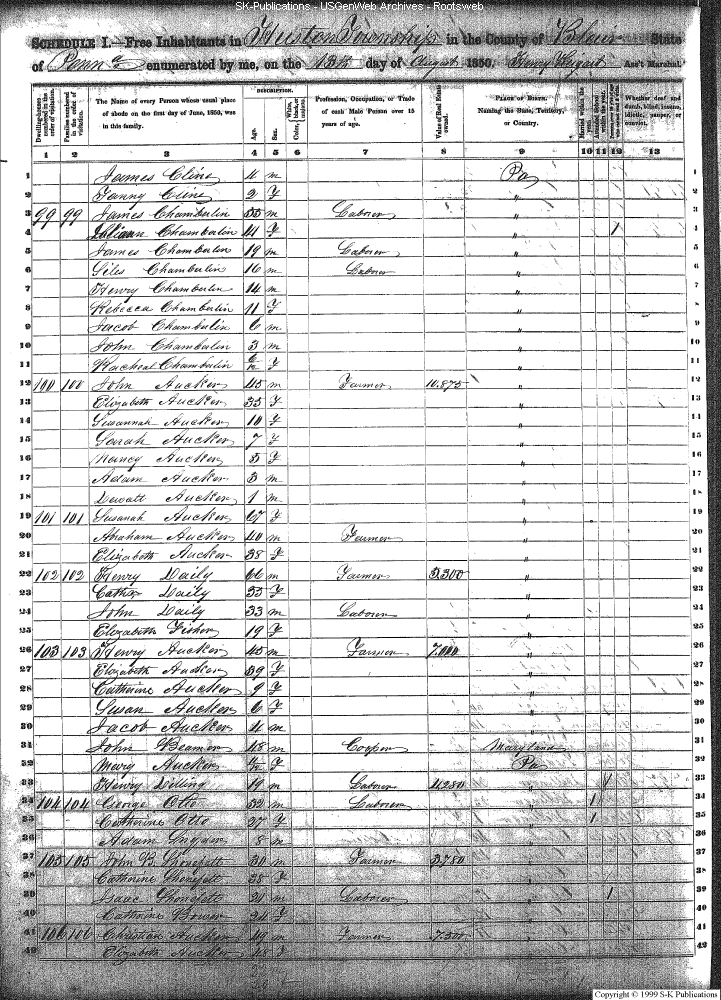 SK-Publications - USGenWeb Archives - Rootsweb
SCHEDULE I.—Free Inhabitants in Huston Township in the County of Blair State
of Penna enumerated by me, on the 13th day of August 1850. Henry Ass't Marshal.
Dwelling-houses numbered in the order of visitation. Families numbered in the order of visitation. The Name of every Person whose usual place of abode on the first day of June, 1850, was in this family. DESCRIPTION. Age. Sex. White, black, or mulatto. Color, Profession, Occupation, or Trade of each Male Person over 15 years of age. Value of Real Estate owned. PLACE OF BIRTH. Naming the State, Territory, or Country. Married within the year. Attended School within the year. Whether deaf and dumb, blind, insane, idiotic, pauper, or convict.
1 2 3 4 5 6 7 8 9 10 11 12 13
1 James Cline 4 m Pa 1
2 Fanny Cline 2 F " 2
3 99 99 James Chamberlin 55 m Laborer " 3
4 Chamberlin 41 F " 1 4
5 James Chamberlin 19 m Laborer " 5
6 Giles Chamberlin 16 m Laborer " 6
7 Henry Chamberlin 14 m " 7
8 Rebecca Chamberlin 11 F " 8
9 Jacob Chamberlin 6 m " 9
10 John Chamberlin 3 m " 10
11 Racheal Chamberlin F " 11
12 100 100 John Aucker 45 m Farmer 10,875 " 12
13 Elizabeth Aucker 35 F " 13
14 Susannah Aucker 10 F " 14
15 Sarah Aucker 7 F " 15
16 Nancy Aucker 5 F " 16
17 Adam Aucker 3 m " 17
18 Aucker 1 m " 18
19 101 101 Susanah Aucker 67 F " 19
20 Abraham Aucker 40 m Farmer " 20
21 Elizabeth Aucker 38 F " 21
22 102 102 Henry Daily 66 m Farmer 3,300 " 22
23 Daily 55 F " 23
24 John Daily 33 m Laborer " 24
25 Elizabeth Fisher 19 F " 25
26 103 103 Henry Aucker 45 m Farmer 7,000 " 26
27 Elizabeth Aucker 39 F " 27
28 Catherine Aucker 9 F " 28
29 Susan Aucker 6 F " 29
30 Jacob Aucker 4 m " 30
31 John Beamer 48 m Cooper Maryland 31
32 Mary Aucker F Pa 32
33 Henry Dilling 19 m Laborer 4,280 " 1 33
34 104 104 George Otto 32 m Laborer " 1 34
35 Catherine Otto 27 F " 1 35
36 Adam 8 m " 36
37 105 105 John B 30 m Farmer 3,780 " 37
38 Catherine 38 F " 38
39 Isaac 21 m Laborer " 1 39
40 Catherine Bower 24 F " 40
41 106 106 Christian Aucker 49 m Farmer 7,500 " 41
42 Elizabeth Aucker 48 F " 42
Copyright © 1999 S-K Publications